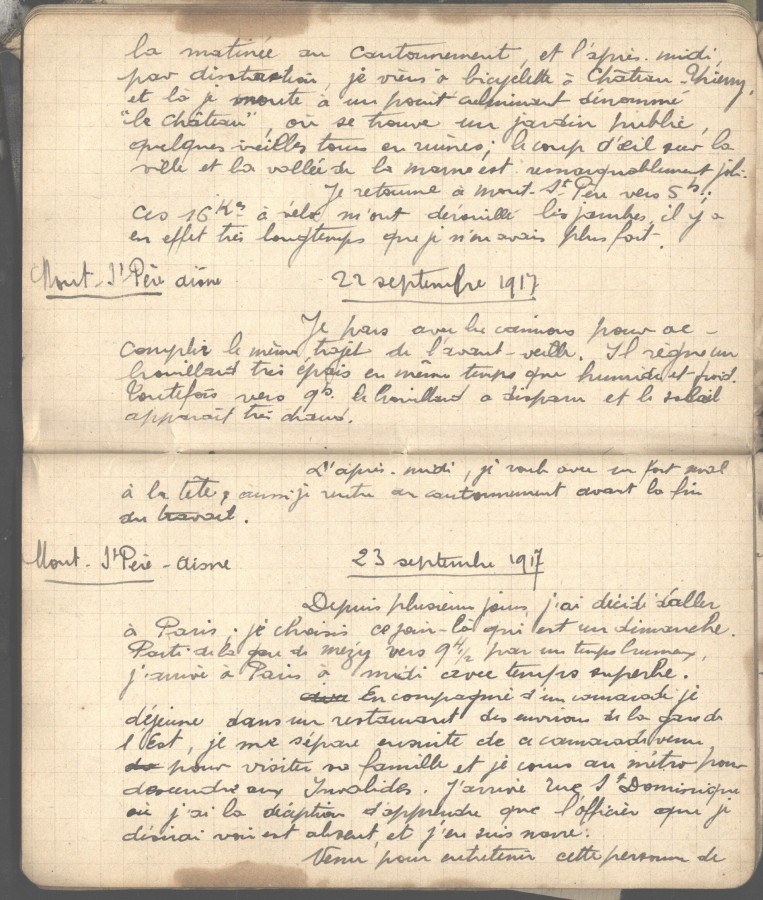 la matinée au cantonnement, et l'après-midi,
par distraction, je viens à bicyclette à Château-Thierry,
et là je monte à un point culminant dénommé
"le Château", où se trouve un jardin public,
quelques vieilles tours en ruines; le coup d'œil sur la
ville et la vallée de la marne est remarquablement joli.
Je retourne à mont-St Père vers 5h;
ces 16 Km à vélo m'ont dérouillé les jambes, il y a
en effet très longtemps que je n'en avais plus fait.
Mont-St Père aisne 22 septembre 1917
Je pars avec les camions pour ac-
complir le même trajet de l'avant-veille. Il règne un
brouillard très épais en même temps que humide et froid.
Toutefois vers 9h. le brouillard a disparu et le soleil
apparaît très chaud.
L'après-midi, je roule avec un fort mal
à la tête, aussi je rentre au cantonnement avant la fin
du travail.
Mont-St Père-aisne 23 septembre 1917
Depuis plusieurs jours, j'ai décidé d'aller
à Paris; je choisis ce jour-là qui est un dimanche.
Parti de la gare de mézy vers 9h1/2 par un temps brumeux,
j'arrive à Paris à midi avec temps superbe.
En compagnie d'un camarade je
déjeune dans un restaurant des environs de la gare de
l'Est, je me sépare ensuite de ce camarade venu
pour visiter sa famille et je cours au métro pour
descendre aux Invalides. J'arrive rue St Dominique
où j'ai la déception d'apprendre que l'officier que je
désirai voir est absent, et j'en suis navré.
Venu pour entretenir cette personne de